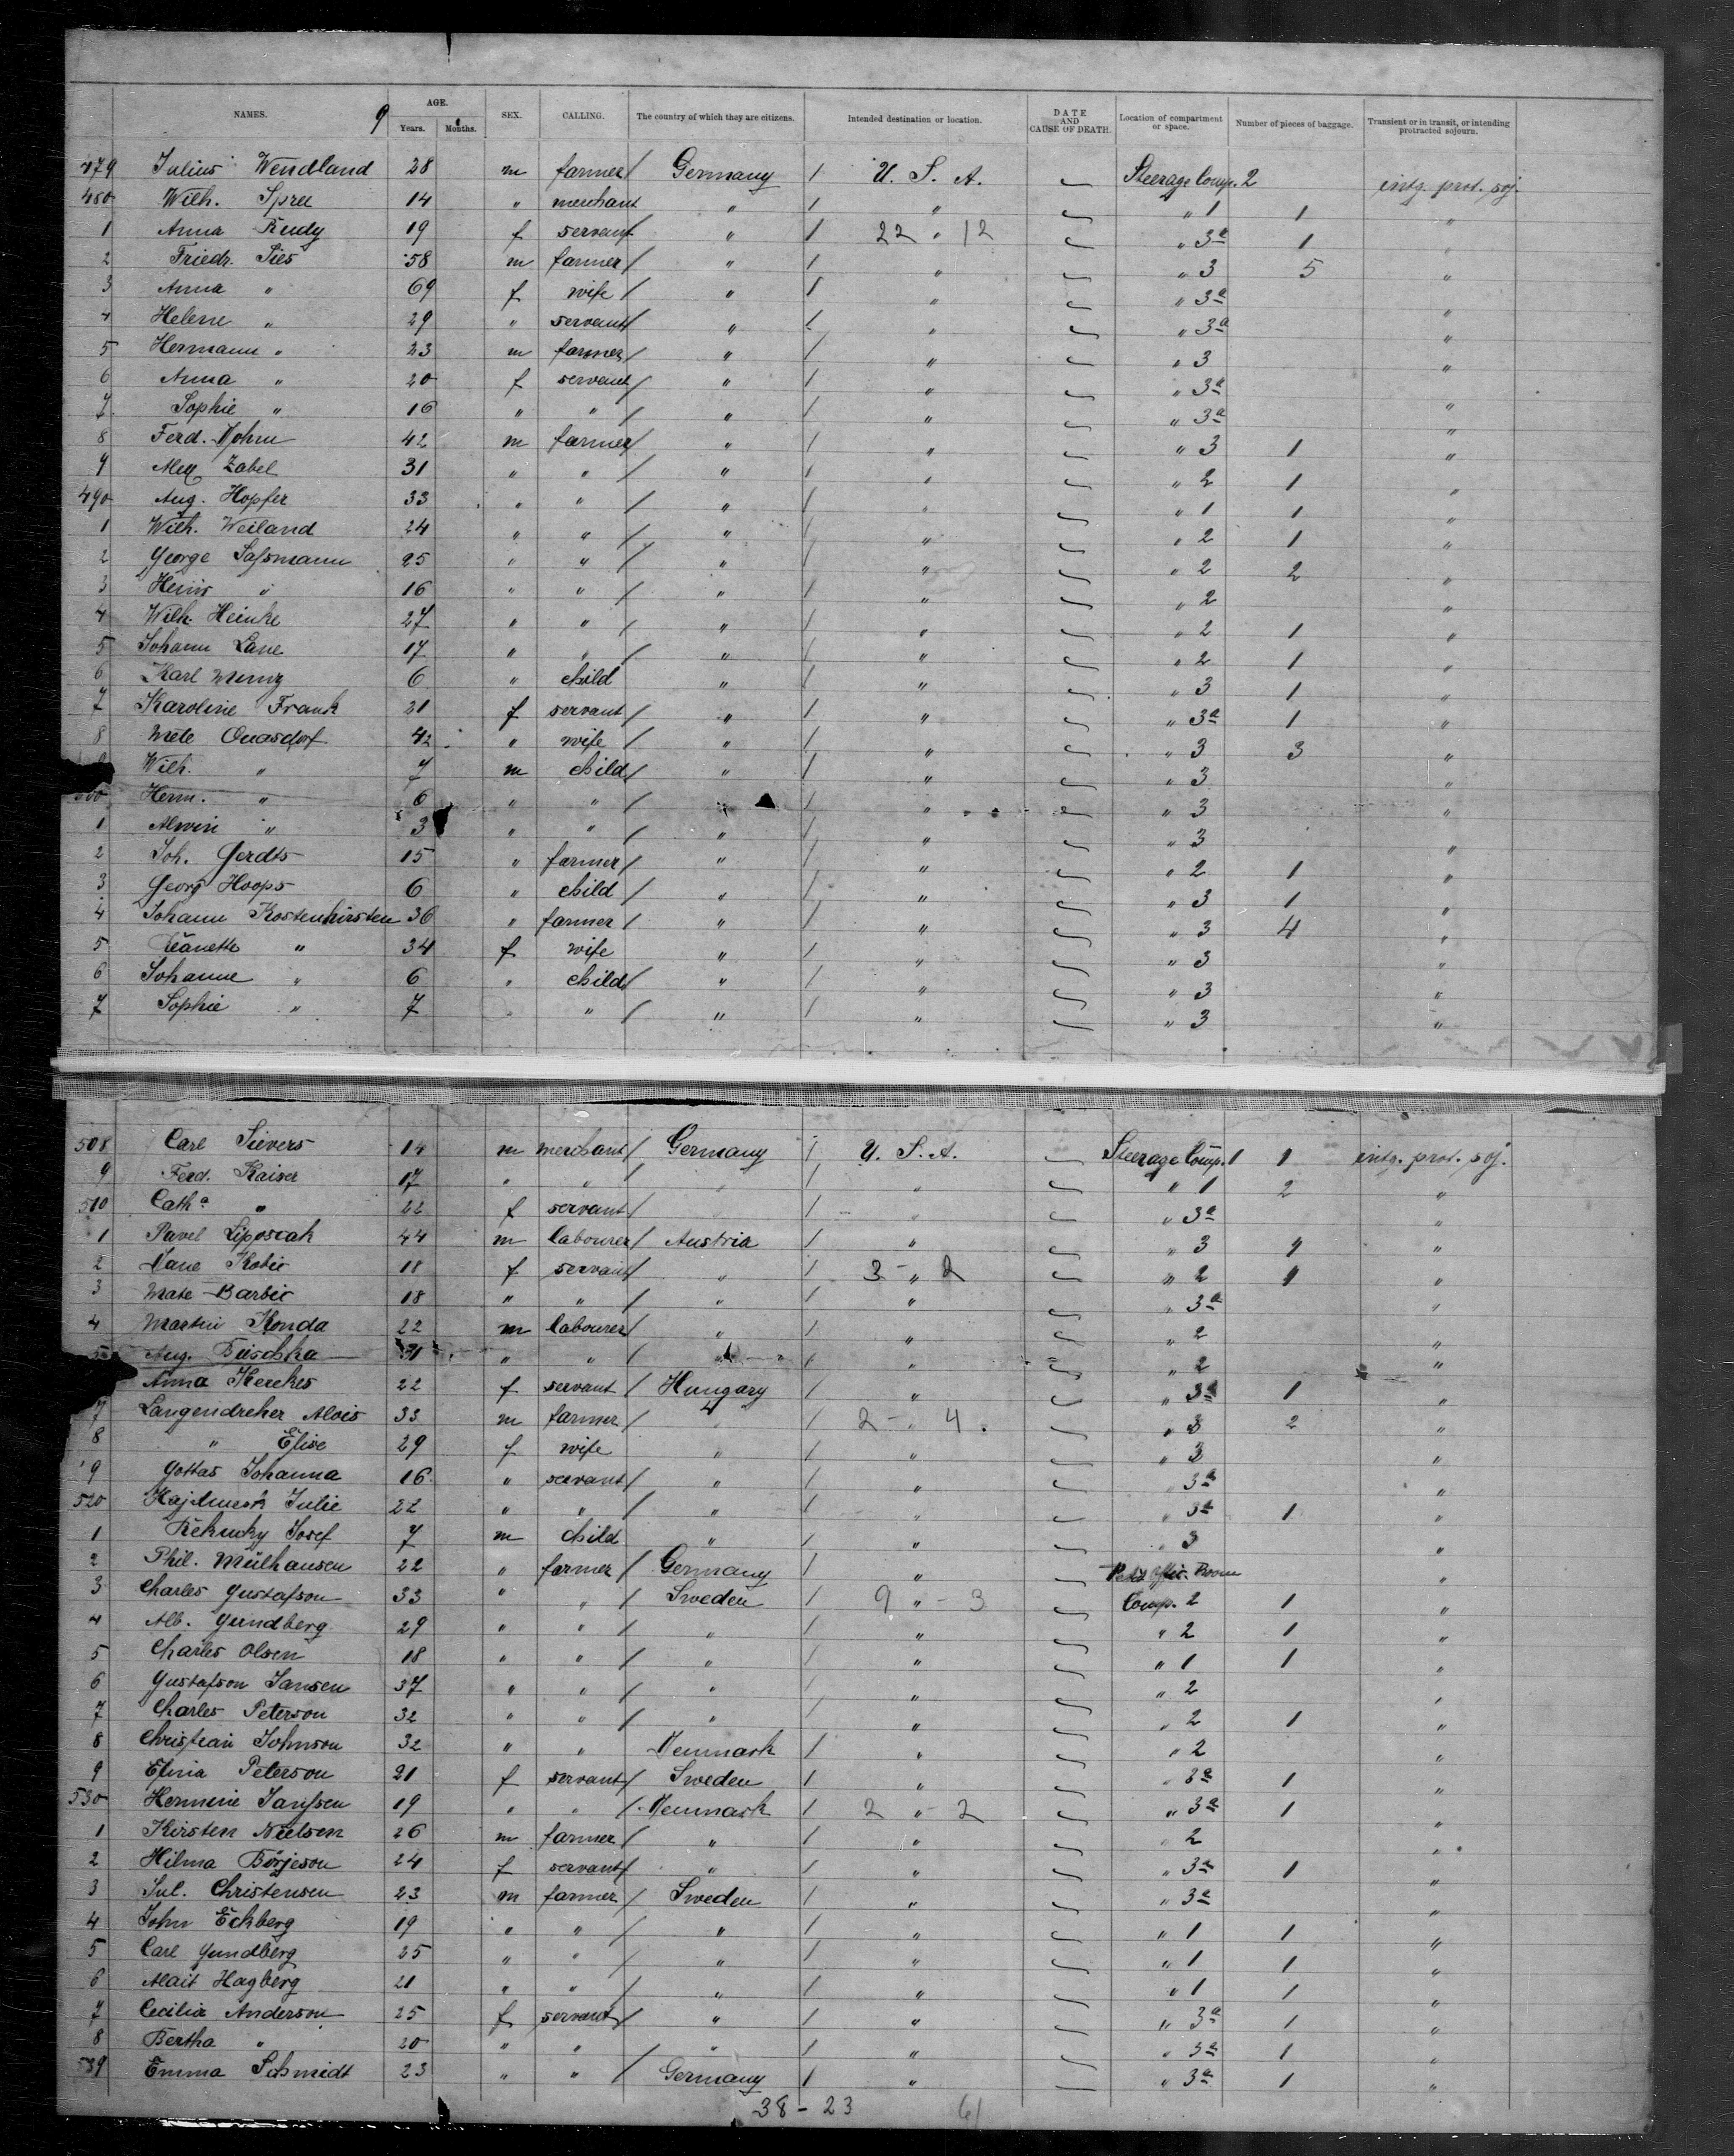 NAMES. 9 AGE. Years. Months. SEX. CALLING. The country of which they are citizens. Intended destination or location. DATE AND CAUSE OF DEATH. Location of compartment or space. Number of pieces of baggage. Transient or in transit, or intending protracted sojourn.
479 Julius Wendland 28 m farmer / Germany / U. S. A. Steerage Comp. 2 intg. prot. soj.
480 Wilh. Spree 14 " merchant " / " " 1 1 "
1 Anna Rudy 19 f servant " / 22 " 12 " 3a 1 "
2 Friedr. Sies 58 m farmer / " / " " 3 5 "
3 Anna " 69 f wife / " / " " 3a "
4 Helene " 29 " servant " / " " 3a "
5 Hermann " 23 m farmer / " / " " 3 "
6 Anna " 20 f servant / " / " " 3a "
7 Sophie " 16 " " / " / " " 3a "
8 Ferd. 42 m farmer / " / " " 3 1 "
9 Alex Zabel 31 " " / " / " " 2 1 "
490 Aug. Hopfer 33 " " / " / " " 1 1 "
1 Wilh. Weiland 24 " " / " / " " 2 1 "
2 George Sassmann 25 " " / " / " " 2 2 "
3 " 16 " " / " / " " 2 "
4 Wilh. Heinke 27 " " / " / " " 2 1 "
5 Johann Lane 17 " " / " / " " 2 1 "
6 Karl 6 " child " / " " 3 1 "
7 Karoline Frank 21 f servant / " / " " 3a 1 "
8 Mete Quasdorf 42 " wife / " / " " 3 3 "
Wilh. " 7 m child / " / " " 3 "
500 Herm. " 6 " " / " / " " 3 "
1 Alwin " 3 " " / " / " " 3 "
2 Joh. Gerdts 15 " farmer / " / " " 2 1 "
3 Georg Hoops 6 " child / " / " " 3 1 "
4 Johann Kostenhirsten 36 " farmer / " / " " 3 4 "
5 " 34 f wife " / " " 3 "
6 Johanne " 6 " child / " / " " 3 "
7 Sophie " 7 " / " / " " 3 "
508 Carl Sievers 14 m merchant / Germany / U. S. A. Steerage Comp. 1 1 intg. prot. soj.
9 Ferd. Kaiser 17 " " / " / " " 1 2 "
510 Cath.a " 22 f servant / " / " " 3a "
1 Pavel Liposcak 44 m labourer / Austria / " " 3 4 "
2 18 f servant / " / 3 - " 2 " 2 1 "
3 Mate Barbic 18 " " / " / " " 3a "
4 Martin Konda 22 m labourer / " / " " 2 "
5 Aug. " " / " / " " 2 "
Anna Kerekes 22 f servant / Hungary / " " 3a 1 "
7 Langendreher Alois 33 m farmer / " / 2 - " 4 " 3 2 "
8 " Elise 29 f wife " / " " 3 "
9 Gottas Johanna 16 " servant / " / " " 3a "
520 Julie 22 " " / " / " " 3a 1 "
1 Josef 7 m child " / " " 3 "
2 Phil. Mülhausen 22 " farmer / Germany / " Room "
3 Charles Gustafson 33 " " / Sweden / 9 " - 3 Comp. 2 1 "
4 Alb. Gundberg 29 " " / " / " " 2 1 "
5 Charles Olsen 18 " " / " / " " 1 1 "
6 Gustafson Jansen 37 " " / " / " " 2 "
7 Charles Peterson 32 " " / " / " " 2 1 "
8 Christian Johnson 32 " " Denmark / " " 2 "
9 Elina Peterson 21 f servant / Sweden / " " 3a 1 "
530 Hermine Janssen 19 " " / Denmark / 2 " - 2 " 3a 1 "
1 Kirsten Nielsen 26 m farmer / " / " " 2 "
2 Hilma Börjeson 24 f servant / " / " " 3a 1 "
3 Jul. Christensen 23 m farmer / Sweden / " " 3a "
4 John Eckberg 19 " " / " / " " 1 1 "
5 Carl Gundberg 25 " " / " / " " 1 1 "
6 Hagberg 21 " " / " / " " 1 1 "
7 Cecilia Anderson 25 f servant / " / " " 3a 1 "
8 Bertha " 20 " " / " / " " 3a 1 "
539 Emma Schmidt 23 " " / Germany / " " 3a 1 "
38 - 23 61